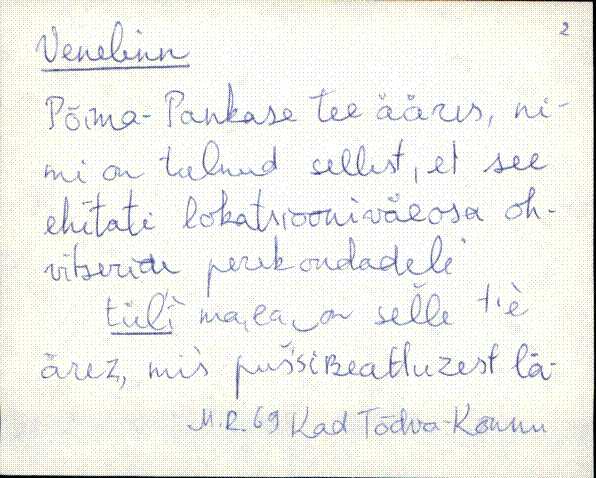 2
Venelinn
Põima-Pankase tee ääres, ni-
mi on tulnud sellest, et see
ehitati lokatsiooniväeosa oh-
vitseride perekondadele
tüli maea on selle tiè
ärez, mis pušsi
M.R. 69 Kad Tõdva-Kannu